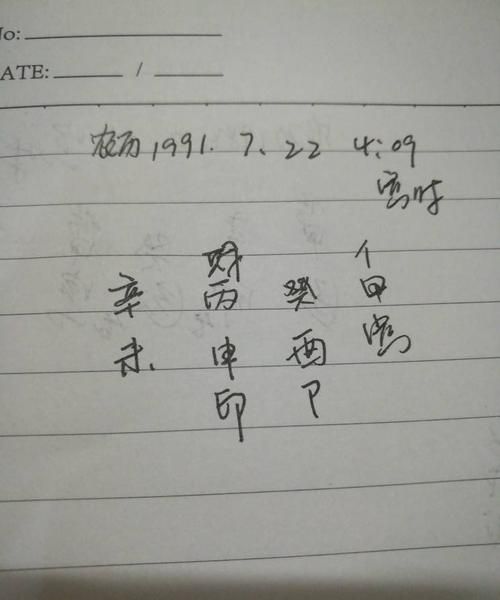 No:
ATE: /
农历1991.7.22 4:09
寅时
财 亻
辛 丙 癸 甲
未 申 酉 寅
印 卩